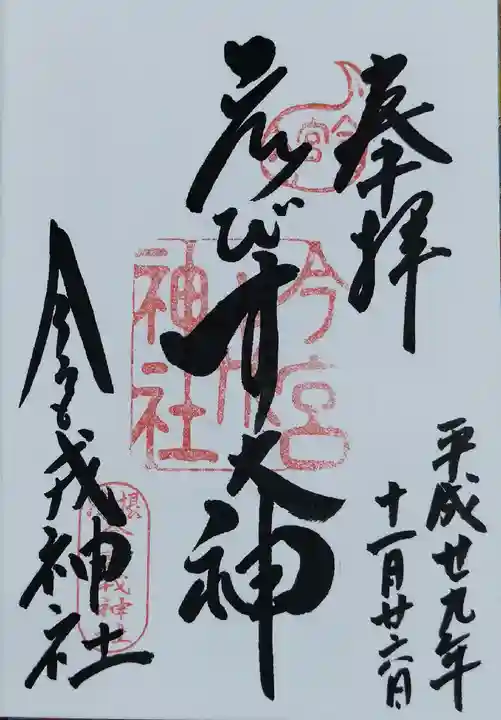 奉拝
平成廿九年
十一月廿六日
ゑびす大神
今宮戎神社
今宮
今宮戎神社